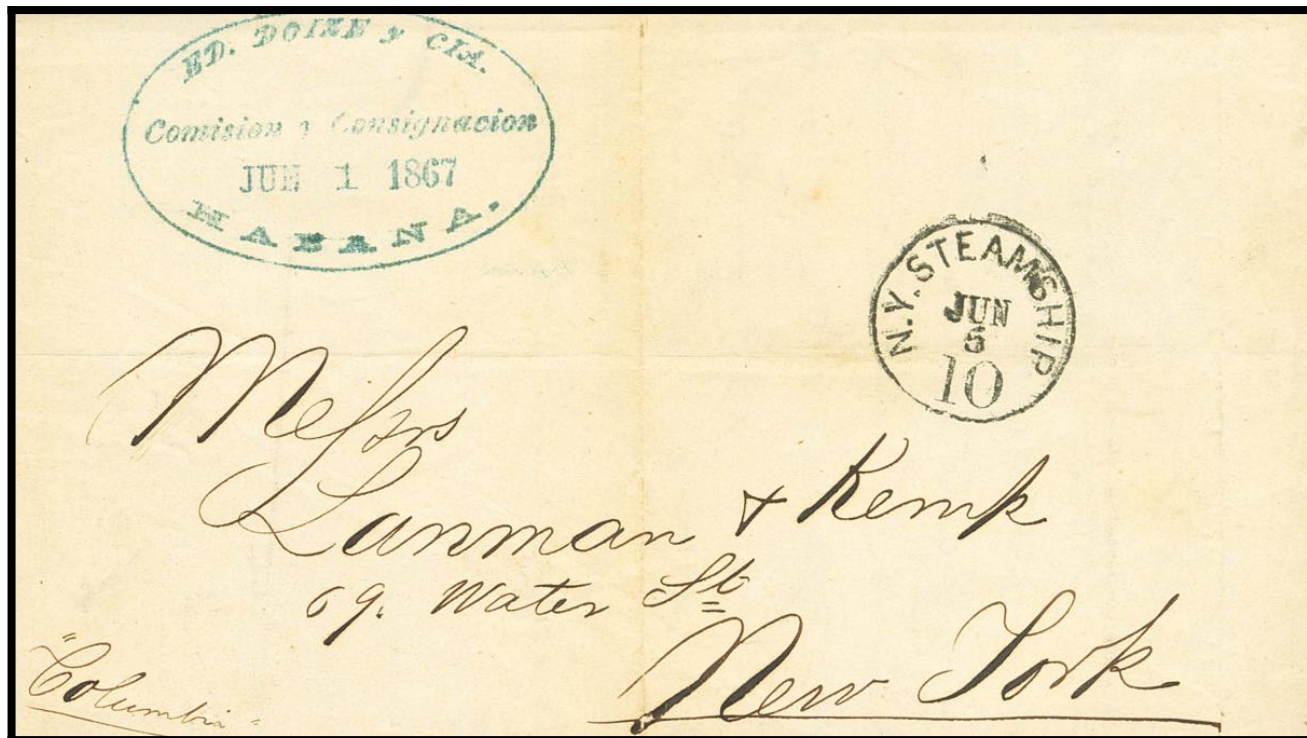 ED. DOIZE y CIA.
Comision y Consignacion
JUN 1 1867
HABANA.
N.Y. STEAMSHIP
JUN
5
10
Messrs
Lanman & Kemp
69. Water St
New York
"Columbia"